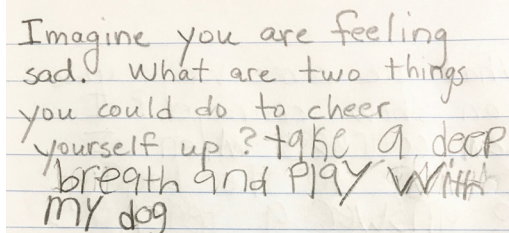 Imagine you are feeling
sad. What are two things
you could do to cheer
yourself up? take a deep
breath and Play With
my dog